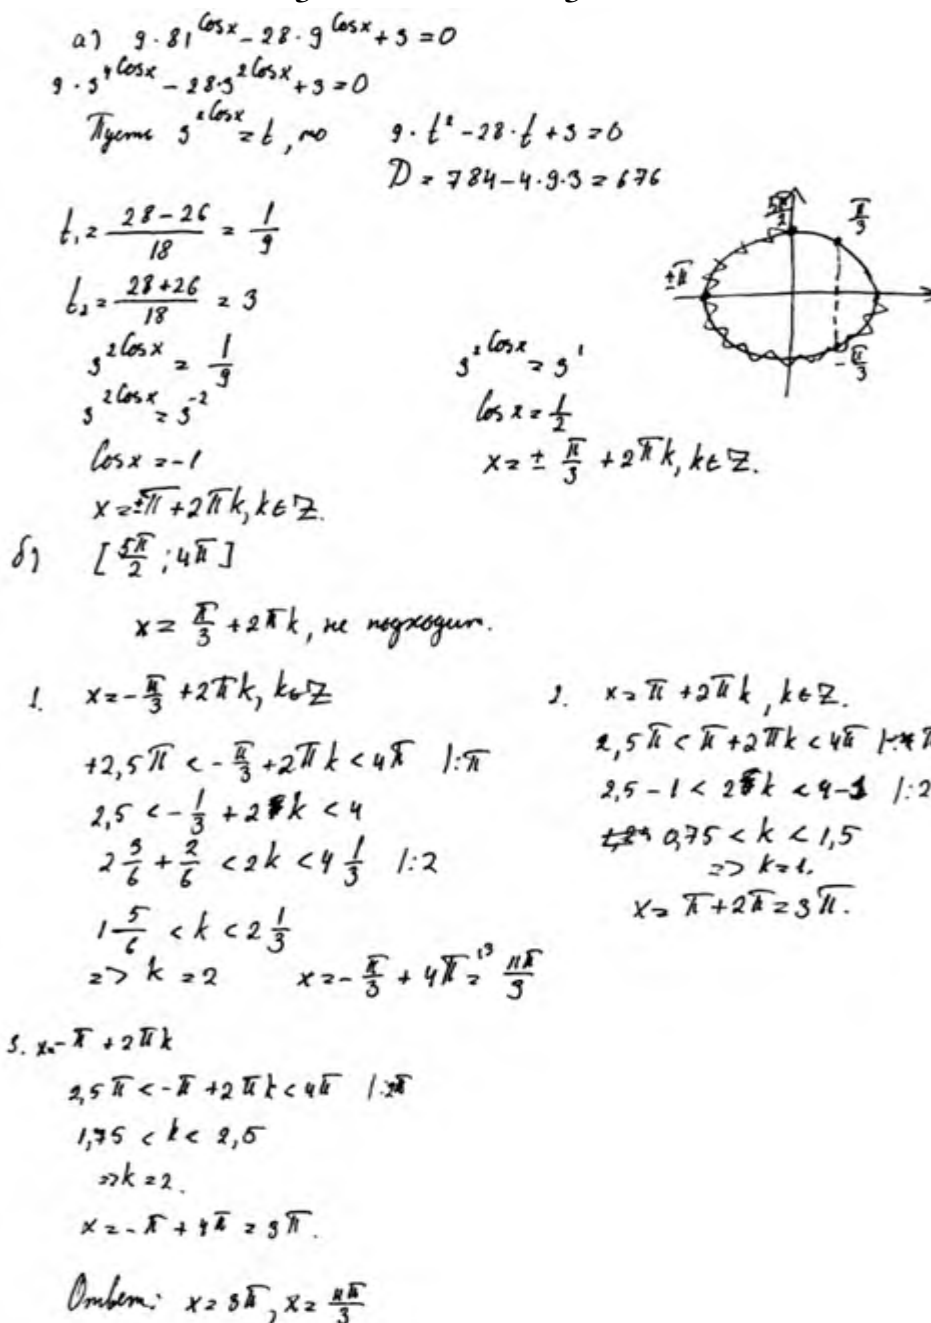 а) 9·81^cosx − 28·9^cosx + 3 = 0
9·3^4cosx − 28·3^2cosx + 3 = 0
Пусть 3^2cosx = t, то 9·t² − 28·t + 3 = 0
D = 784 − 4·9·3 = 676
t₁ = (28 − 26)/18 = 1/9
t₂ = (28 + 26)/18 = 3
5π/2
π/3
±π
−π/3
3^2cosx = 1/9
3^2cosx = 3^−2
cosx = −1
x = ±π + 2πk, k∈Z.
3^2cosx = 3^1
cosx = 1/2
x = ± π/3 + 2πk, k∈Z.
б) [5π/2 ; 4π]
x = π/3 + 2πk, не подходит.
1. x = −π/3 + 2πk, k∈Z
+2,5π < −π/3 + 2πk < 4π |:π
2,5 < −1/3 + 2k < 4
2 3/6 + 2/6 < 2k < 4 1/3 |:2
1 5/6 < k < 2 1/3
=> k = 2 x = −π/3 + 4π = 11π/3
2. x = π + 2πk, k∈Z.
2,5π < π + 2πk < 4π |:π
2,5 − 1 < 2k < 4 − 1 |:2
0,75 < k < 1,5
=> k = 1.
x = π + 2π = 3π.
3. x = −π + 2πk
2,5π < −π + 2πk < 4π |:2π
1,75 < k < 2,5
=> k = 2.
x = −π + 4π = 3π.
Ответ: x = 3π, x = 11π/3